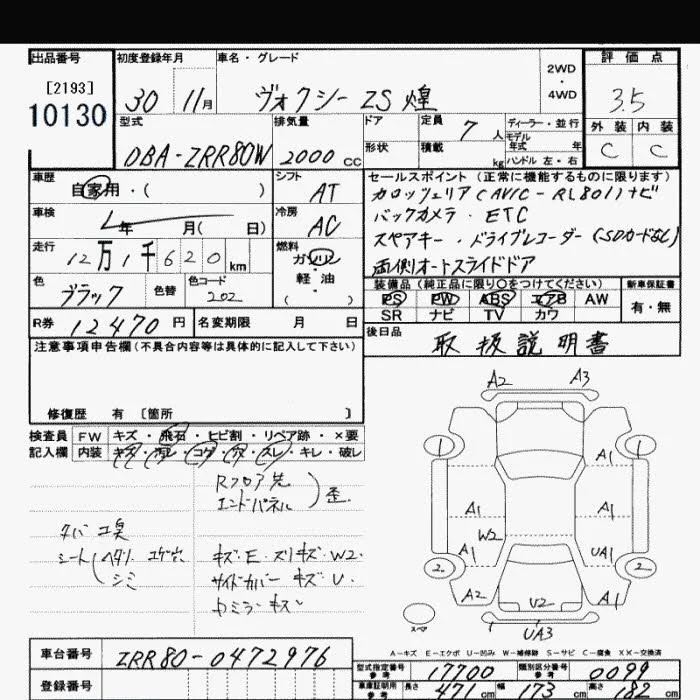 出品番号
[2193]
10130
初度登録年月
30 11月
車名・グレード
ヴォクシー ZS 煌
2WD
・
4WD
評価点
3.5
外装 内装
C C
型式
DBA-ZRR80W
排気量
2000 cc
ドア
形状
定員 7 人
積載 kg
ディーラー・並行
モデル年式 年式
ハンドル 左・右
車歴
自家用・( )
シフト
AT
車検
年 月( 日)
冷房
AC
走行
12万1千620km
燃料
ガソリン
・
軽・油
( )
色
ブラック
色替
色コード
202
R券 12470円
名変期限 月 日
セールスポイント(正常に機能するものに限ります)
カロッツェリア(AVIC-RL801)ナビ
バックカメラ・ETC
スペアキー・ドライブレコーダー(SDカードなし)
両側オートスライドドア
装備品(純正品に限り○をつけてください)
PS PW ABS エアB AW
SR ナビ TV カワ
新車保証書
有・無
後日品
取扱説明書
注意事項申告欄(不具合内容等は具体的に記入して下さい)
修復歴 有 [箇所 ]
検査員
記入欄
FW キズ・飛石・ヒビ割・リペア跡・×要
内装 キズ・汚レ・コゲ・穴・スレ・キレ・破レ
Rフロア先
エンドパネル
歪
タバコ臭
シート ヘタリ コゲ穴
シミ
キズ・E・スリキズ・W2・
サイドカバー キズ・U・
ミラーキズ
A2 A3
1 1
A1 A1
A1 A1
W2
A1 UA1
2 2
A2 U2 A1
1 UA3
スペア
A-キズ E-エクボ U-凹み W-補修跡 S-サビ C-腐食 XX-交換済
車台番号
ZRR80-0472976
登録番号
型式指定番号 参考 17700
類別区分番号 参考 0099
車庫証明用 参考 長さ 471cm 幅 173cm 高さ 182cm